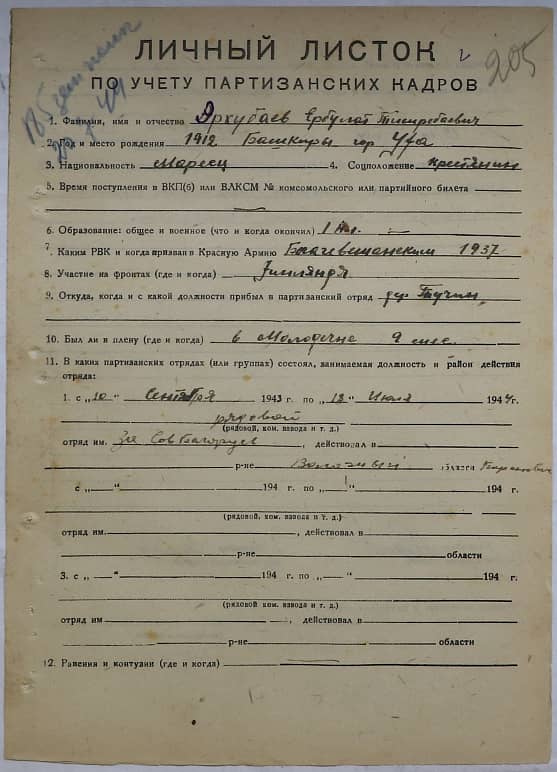 205
ЛИЧНЫЙ ЛИСТОК
ПО УЧЕТУ ПАРТИЗАНСКИХ КАДРОВ
1. Фамилия, имя и отчество Яркубаев Ербулат
2. Год и место рождения 1912 Башкиры гор Уфа
3. Национальность Мареец 4. Соцположение крестянин
5. Время поступления в ВКП(б) или ВЛКСМ № комсомольского или партийного билета
6. Образование: общее и военное (что и когда окончил) 1
7. Каким РВК и когда призван в Красную Армию 1937
8. Участие на фронтах (где и когда)
9. Откуда, когда и с какой должности прибыл в партизанский отряд дер Тучин
10. Был ли в плену (где и когда) в Молодечне 9
11. В каких партизанских отрядах (или группах) состоял, занимаемая должность и район действия
отряда:
1. с „10" Сентября 1943 г. по „12" Июля 1944 г.
рядовой
(рядовой, ком. взвода и т. д.)
отряд им. За Сов , действовал в
р-не области
с „ — " 194 г. по „ " 194 г.
(рядовой, ком. взвода и т. д.)
отряд им. , действовал в
р-не области
3. с „ — " 194 г. по „ — " 194 г.
(рядовой ком. взвода и т. д.)
отряд им , действовал в
р-не области
12. Ранения и контузии (где и когда)